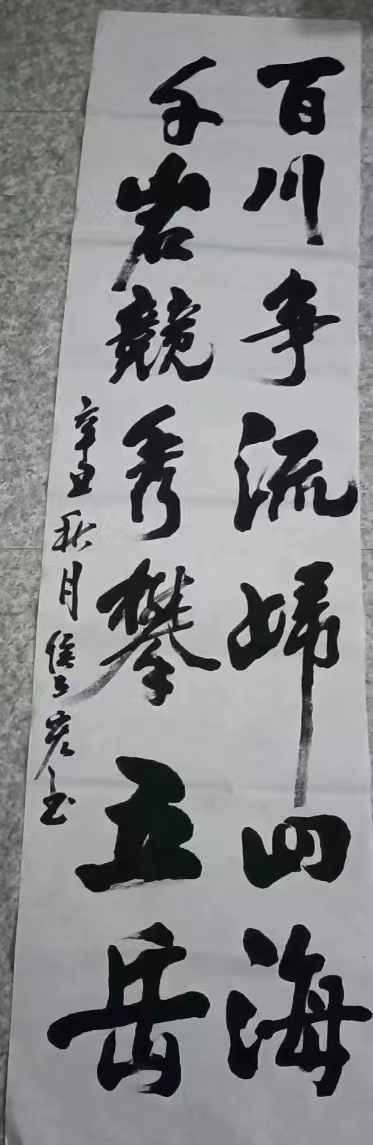 百川争流歸四海
千岩競秀攀五岳
辛丑秋月侯彦书